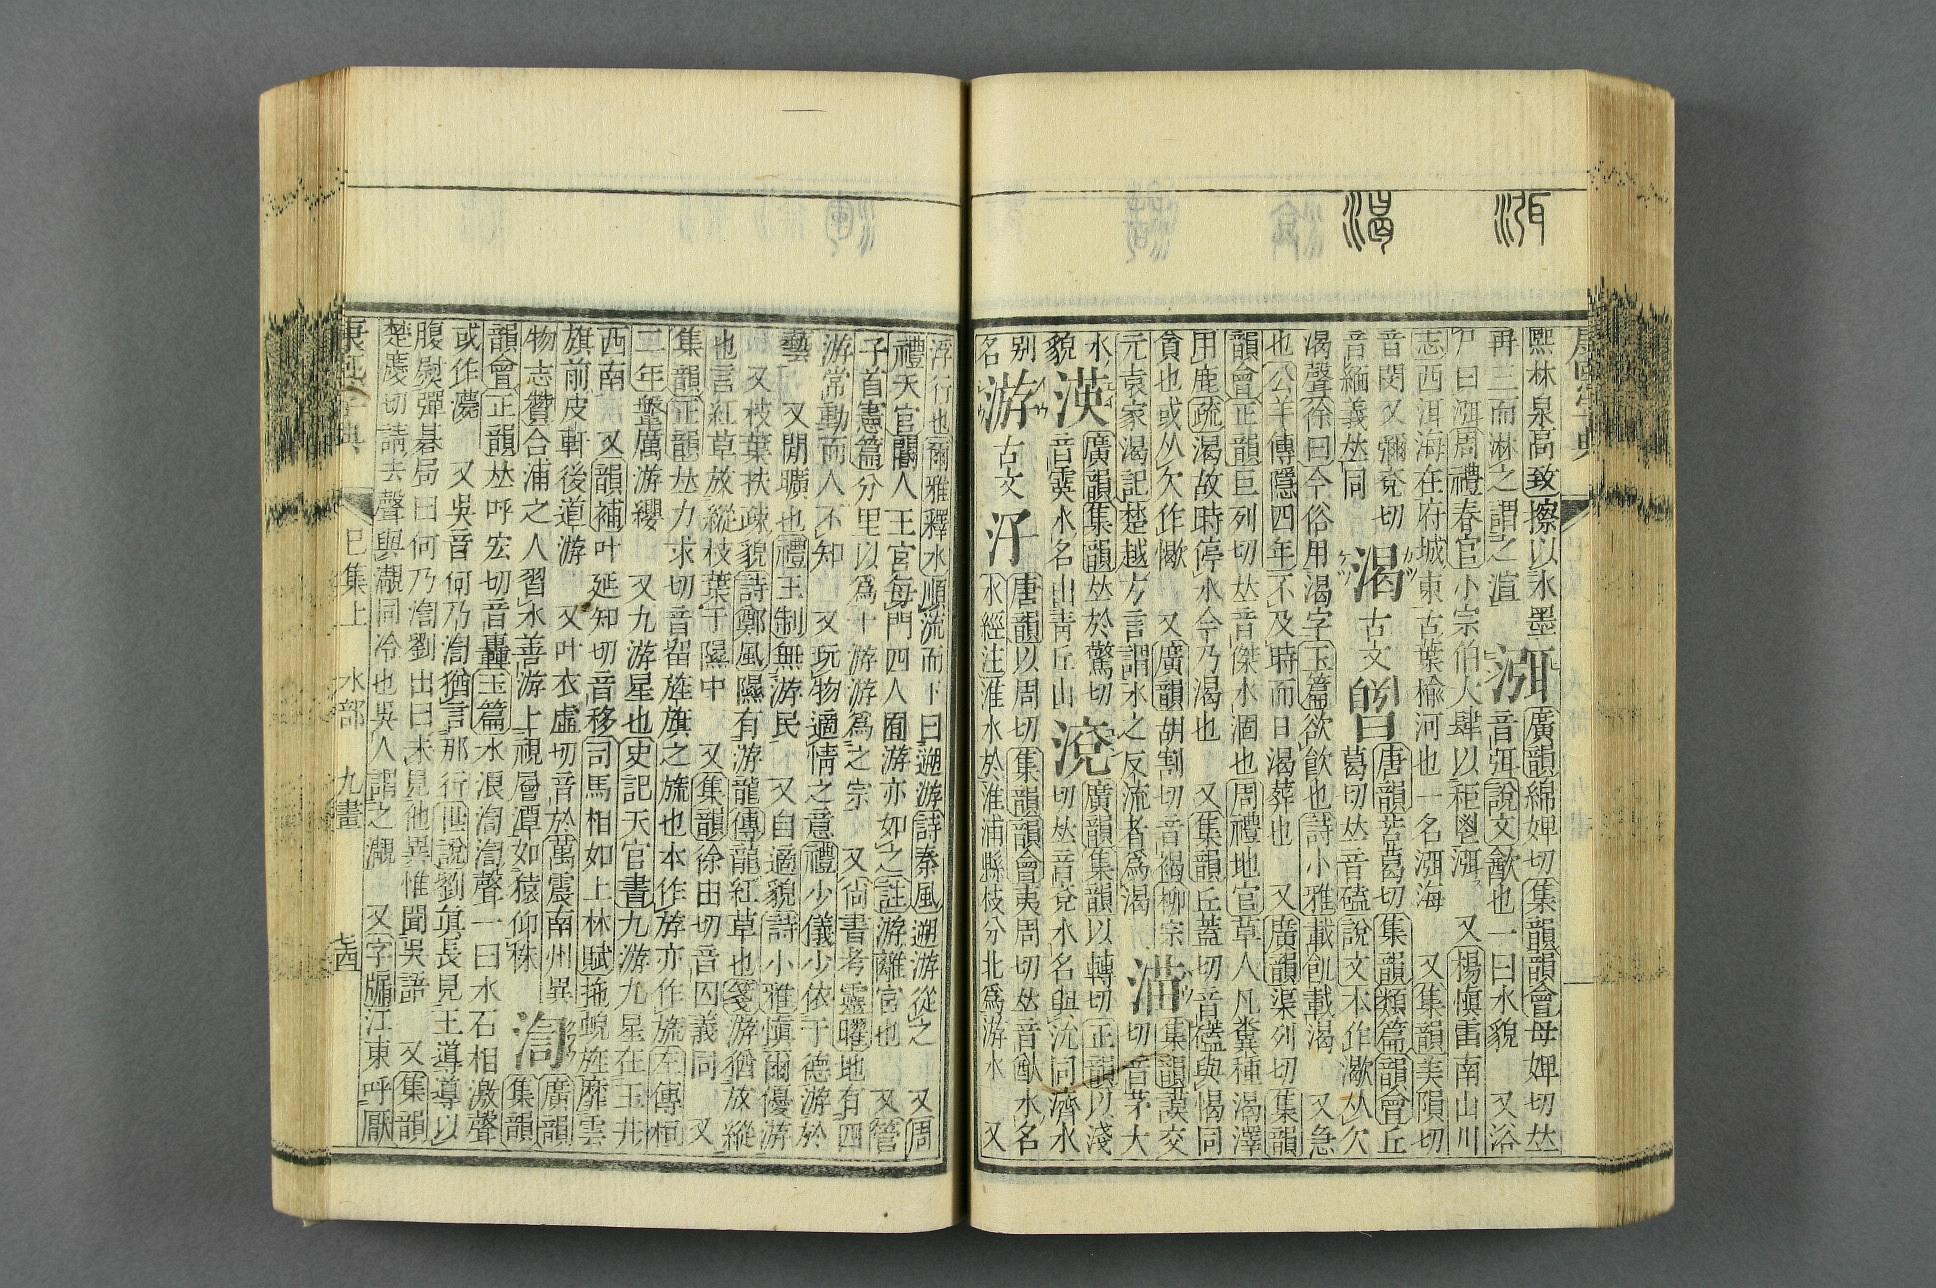 熙林泉高致擦以水墨
再三而淋之謂之渲
渳
音弭說文歠也一曰水貌 又浴
廣韻綿婢切集韻韻會母婢切𠀤
尸曰渳周禮春官小宗伯大肆以秬鬯渳 又楊愼雷南山川
志西洱海在府城東古葉榆河也一名渳海 又集韻美隕切
音閔又彌兗切
音緬義𠀤同
渴
古文
唐韻苦曷切集韻類篇韻會丘
葛切𠀤音磕說文本作㵣从欠
渴聲徐曰今俗用渴字玉篇欲飮也詩小雅載飢載渴 又急
也公羊傳隱四年不及時而日渴葬也 又廣韻渠列切集韻
韻會正韻巨列切𠀤音傑水涸也周禮地官草人凡糞種渴澤
用鹿疏渴故時停水今乃渴也 又集韻丘蓋切音磕與愒同
貪也或从欠作㵣 又廣韻胡割切音褐柳宗
元袁家渴記楚越方言謂水之反流者爲渴
集韻謨交
切音茅大
水貌
渶
廣韻集韻𠀤於驚切
音霙水名山靑丘山
渷
廣韻集韻以轉切正韻以淺
切𠀤音兗水名與沇同濟水
别
名
游
古文
汓
唐韻以周切集韻韻會夷周切𠀤音猷水名
水經注淮水於淮浦縣枝分北爲游水 又
浮行也爾雅釋水順流而下曰遡游詩秦風遡游從之 又周
禮天官閽人王宮每門四人囿游亦如之註游離宮也 又管
子首憲篇分里以爲十游游爲之宗 又尙書考靈曜地有四
游常動而人不知 又玩物適情之意禮少儀少依于德游於
藝 又閒曠也禮王制無游民 又自適貌詩小雅愼爾優游
又枝葉扶疎貌詩鄭風隰有游龍傳龍紅草也箋游猶放縱
也言紅草放縱枝葉于隰中 又集韻徐由切音囚義同 又
集韻正韻𠀤力求切音留旌旗之旒也本作斿亦作旒左傳桓
二年鞶厲游纓 又九游星也史記天官書九游九星在玉井
西南 又韻補叶延知切音移司馬相如上林賦拖蜺旌靡雲
旗前皮軒後道游 又叶衣虛切音於萬震南州異
物志贊合浦之人習水善游上視層潭如猿仰株
渹
廣韻
集韻
韻會正韻𠀤呼宏切音轟玉篇水浪渹渹聲一曰水石相激聲
或作㶇 又吳音何乃渹猶言那行世說劉眞長見王導導以
腹熨彈碁局曰何乃渹劉出曰未見他異惟聞吳語 又集韻
楚慶切請去聲與瀙同冷也吳人謂之瀙 又字牖江東呼厭
康熙字典 巳集上 水部 九畫